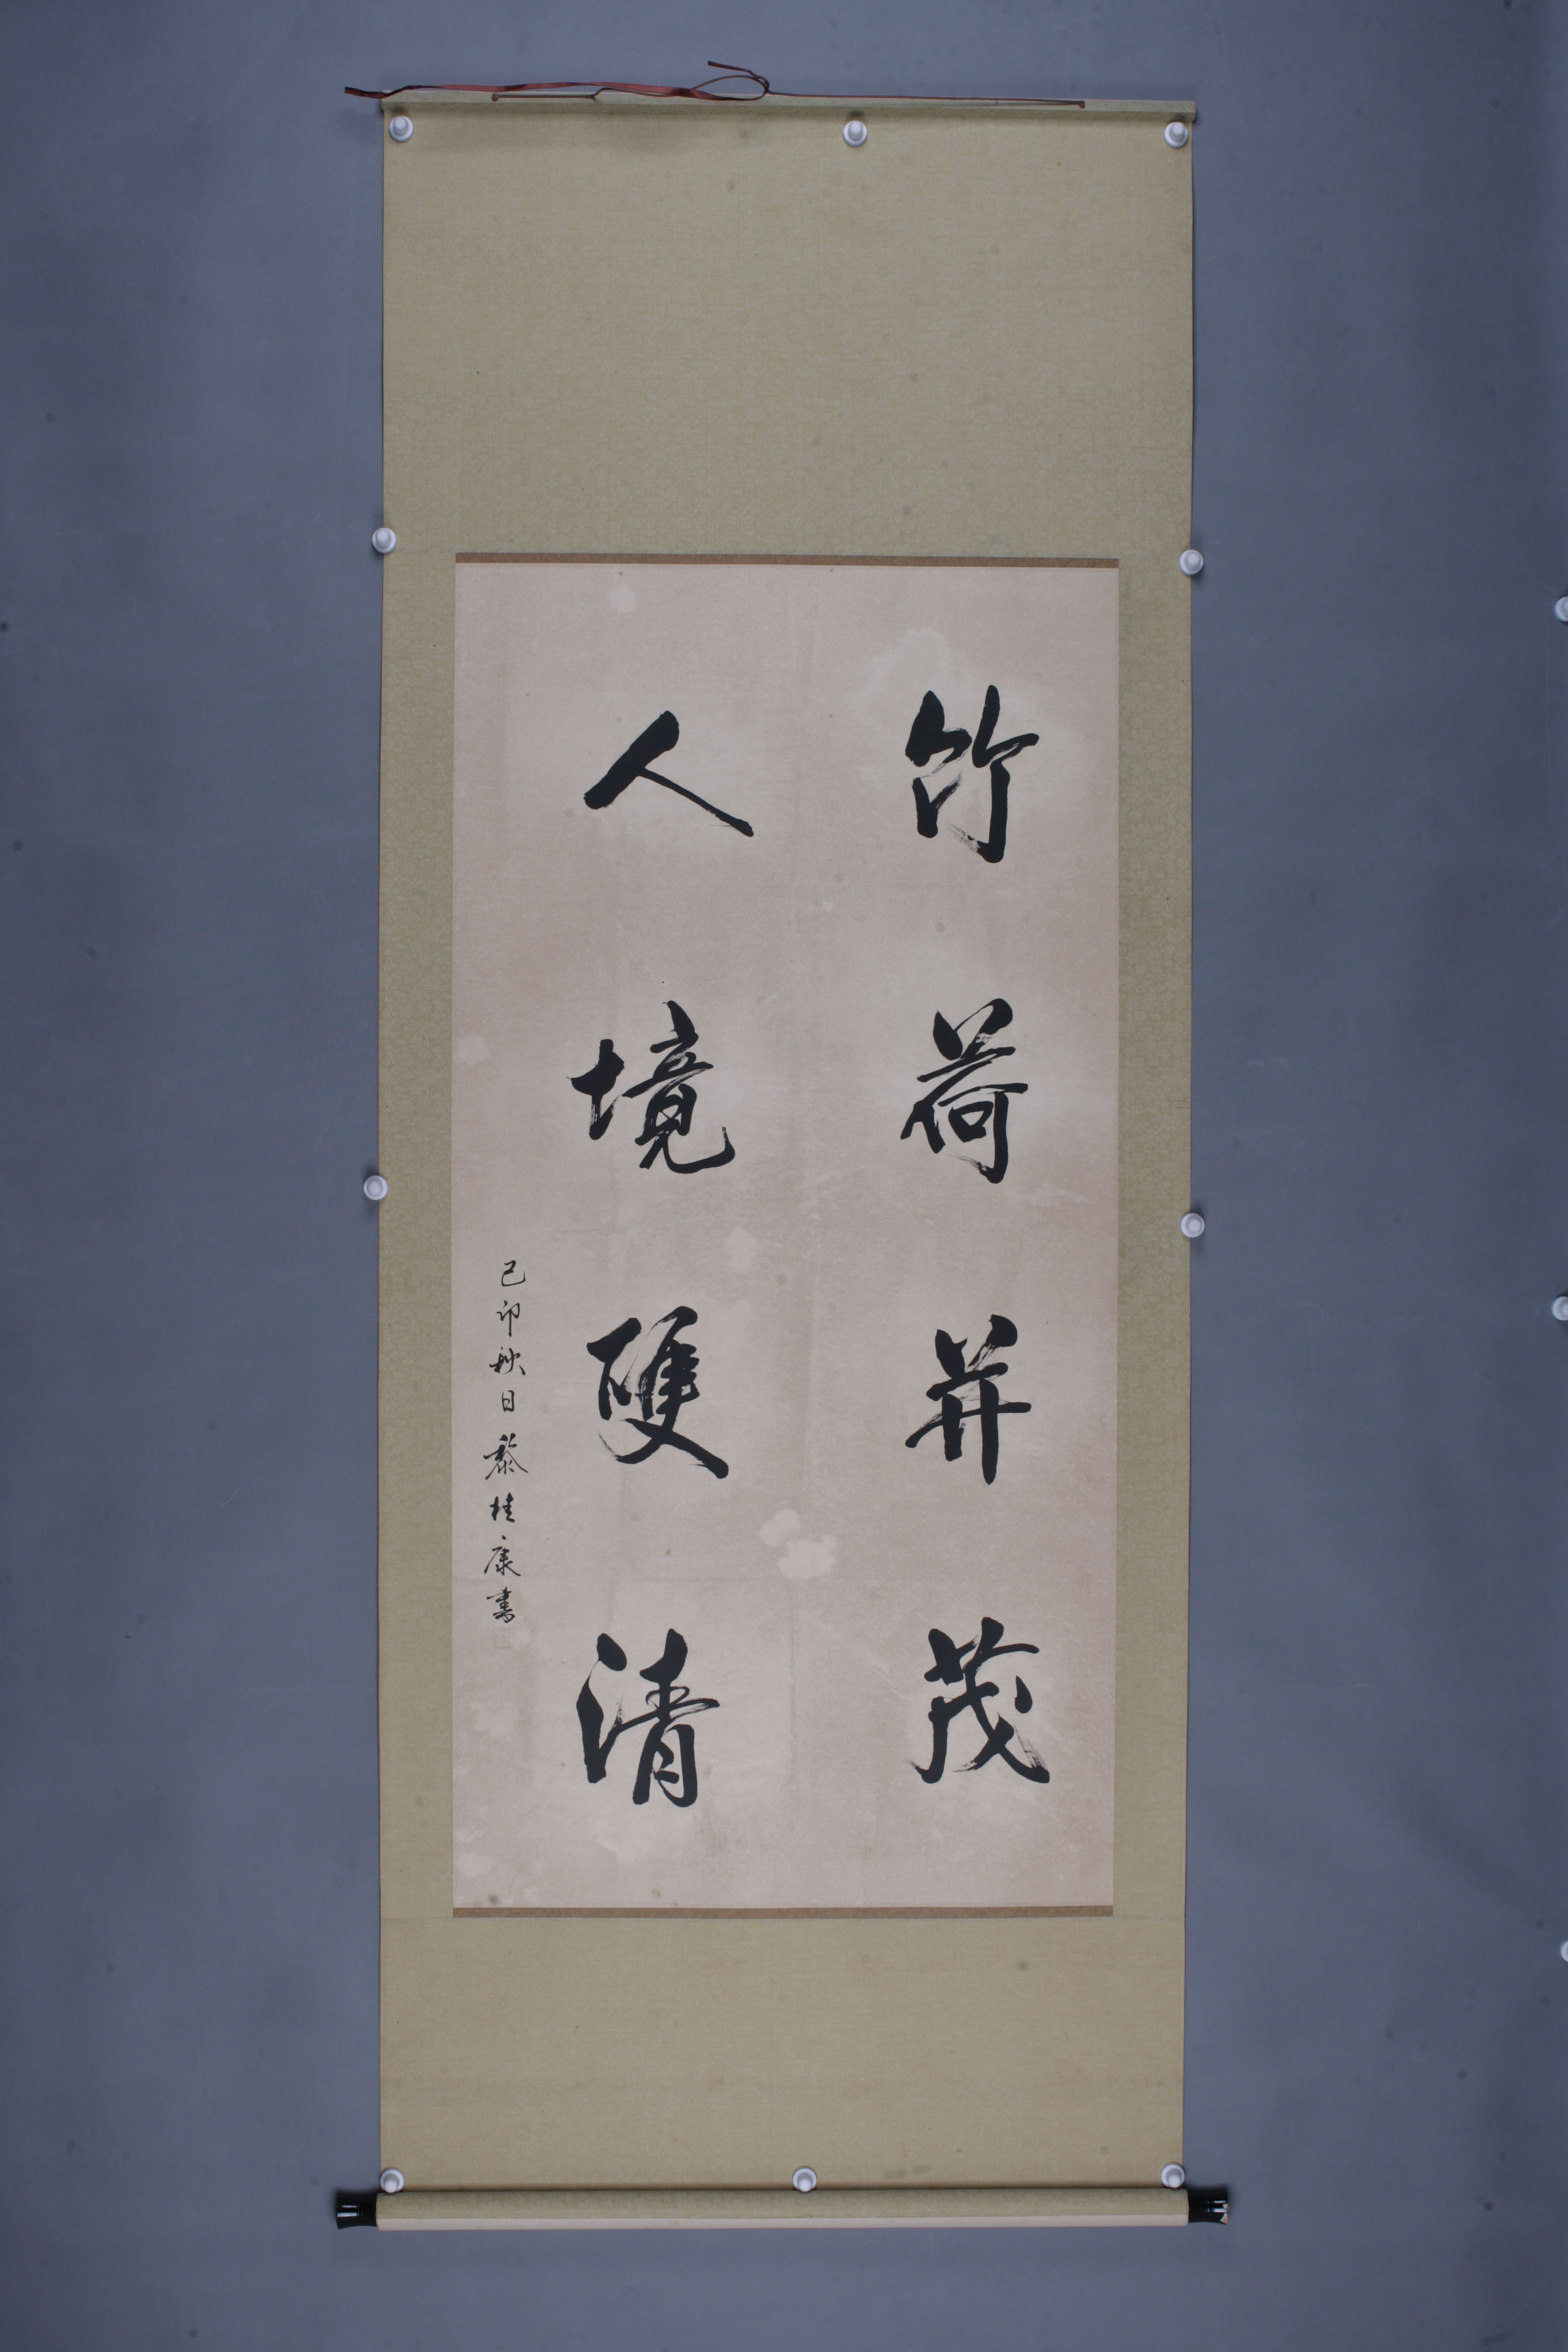 竹荷并茂
人境雙清
己卯秋日黎桂康書